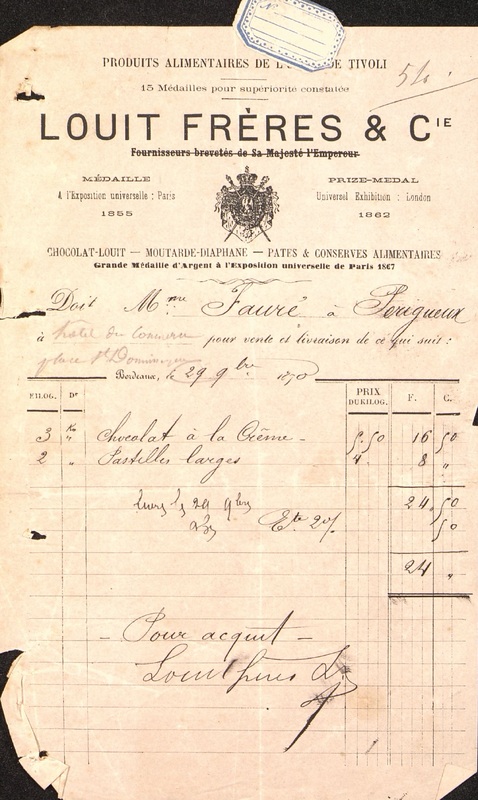 PRODUITS ALIMENTAIRES DE L' DE TIVOLI
54.
15 Médailles pour supériorité constatée
LOUIT FRÈRES & CIE
Fournisseurs brevetés de Sa Majesté l'Empereur
MÉDAILLE PRIZE-MEDAL
A l'Exposition universelle : Paris Universel Exhibition : London
1855 1862
CHOCOLAT-LOUIT — MOUTARDE-DIAPHANE — PATES & CONSERVES ALIMENTAIRES
Grande Médaille d'Argent à l'Exposition universelle de Paris 1867
Doit Mme Fauré à Périgueux
à hotel du commerce pour vente et livraison de ce qui suit :
place St
Bordeaux, le 29 9bre 1870
KILOG. Dr PRIX DU KILOG. F. C.
3 Ko Chocolat à la Crème - 5.50 16 50
2 " Pastilles larges 4. 8 "
29 9bre 24.50
Ete 2% 50
24 "
- Pour acquit -
Louit frères &